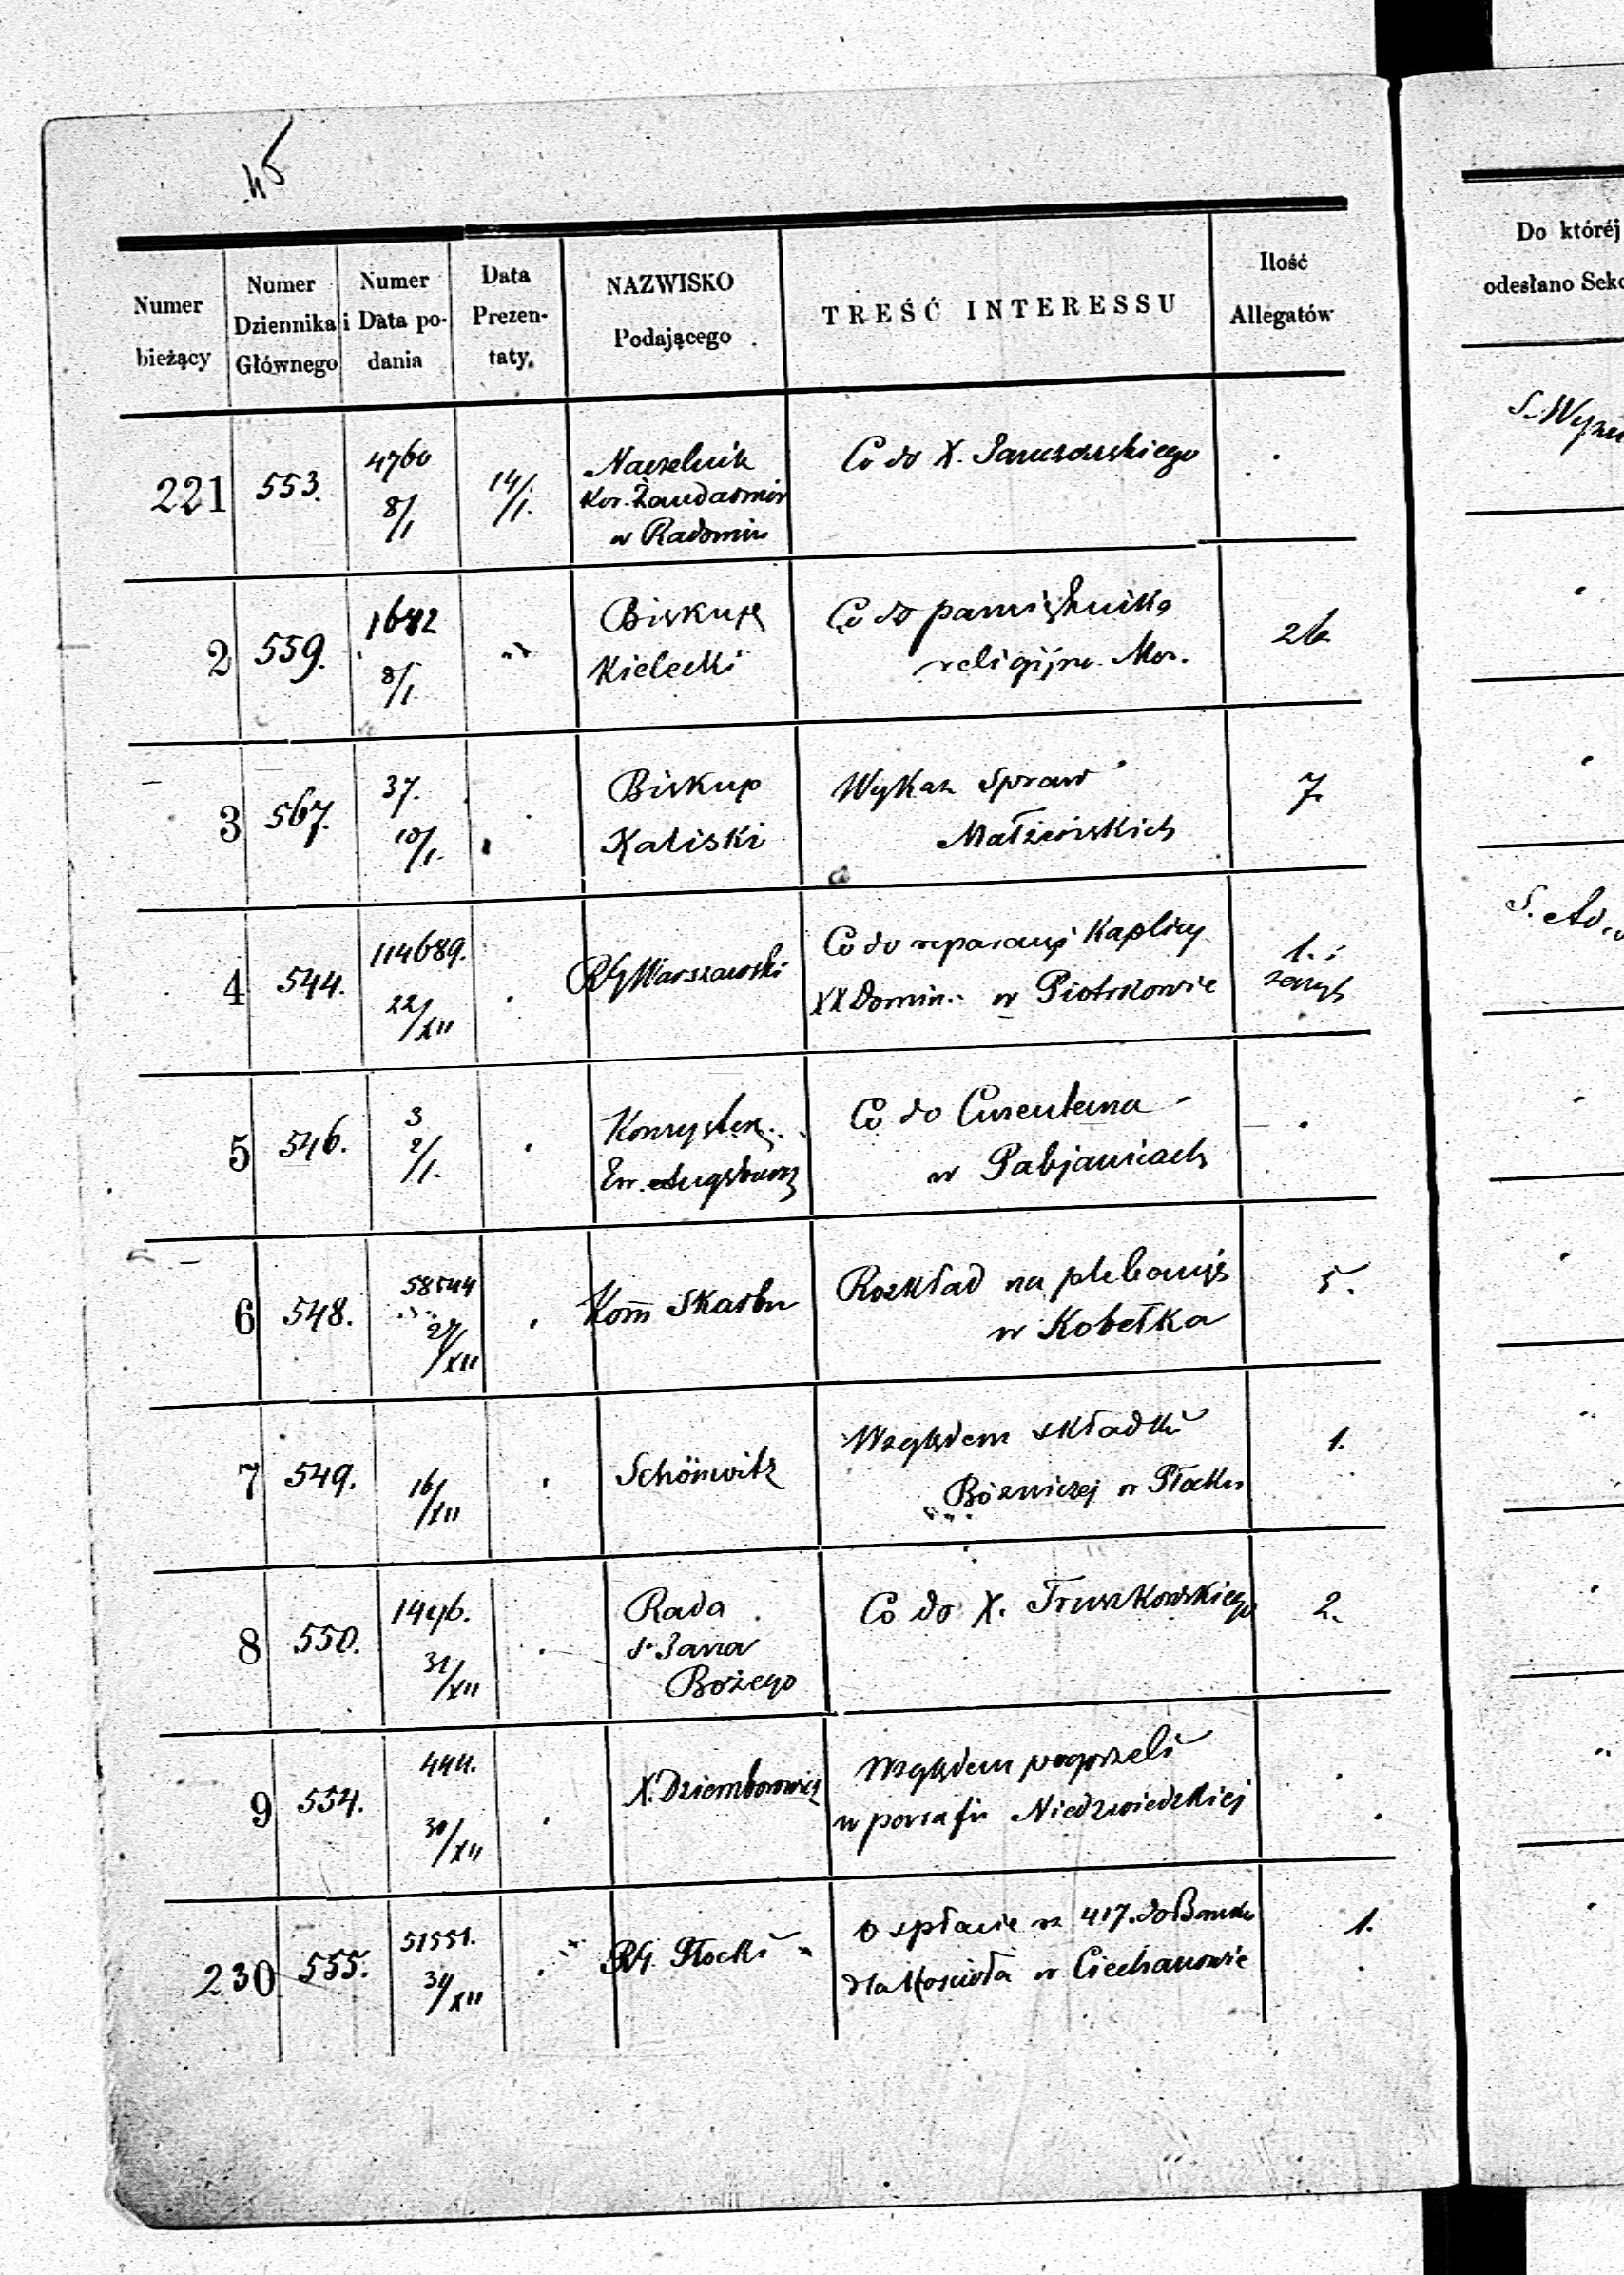 45
Numer bieżący
Numer Dziennika Głównego
Numer i Data podania
Data Prezentaty.
NAZWISKO Podającego
TREŚĆ INTERESSU
Ilość Allegatów
Do któréj
odesłano Sek
221 553. 4760 8/1 14/1. Naczelnik
Kor. Żandarmów
w Radomiu
Co do X.
2 559. 1642 8/1 " Biskup
Kielecki
Co do pamiętnika
religijno Mor.
26
3 567. 37. 10/1. Biskup
Kaliski
Wykaz Spraw
Małżeńskich
7.
4 544. 114689. 22/XII RG Warszawski
Co do reparacyi Kaplicy
XX Domin. w Piotrkowie
1.
zeszyt
5 546. 3 2/1. Konsystorz
Ew. Augsburg
Co do Cmentarza
w Pabjanicach
6 548. 58544 27/XII Kom̄ Skarbu
Rozkład na plebanję
w Kobełka
5.
7 549. 16/XII Schönwitz
Względem składki
Bóżniczej w Płocku
1.
8 550. 1496. 31/XII Rada
S. Jana
Bożego
Co do X. Truszkowskiego
2.
9 554. 444. 30/XII X. Dziemborowicz
Względem pogorzeli
w parafii Niedzwiedzkiej
230 555. 51551. 31/XII RG. Płocki
O spłacie rs 417. do Banku
dla Kościoła w Ciechanowie
1.